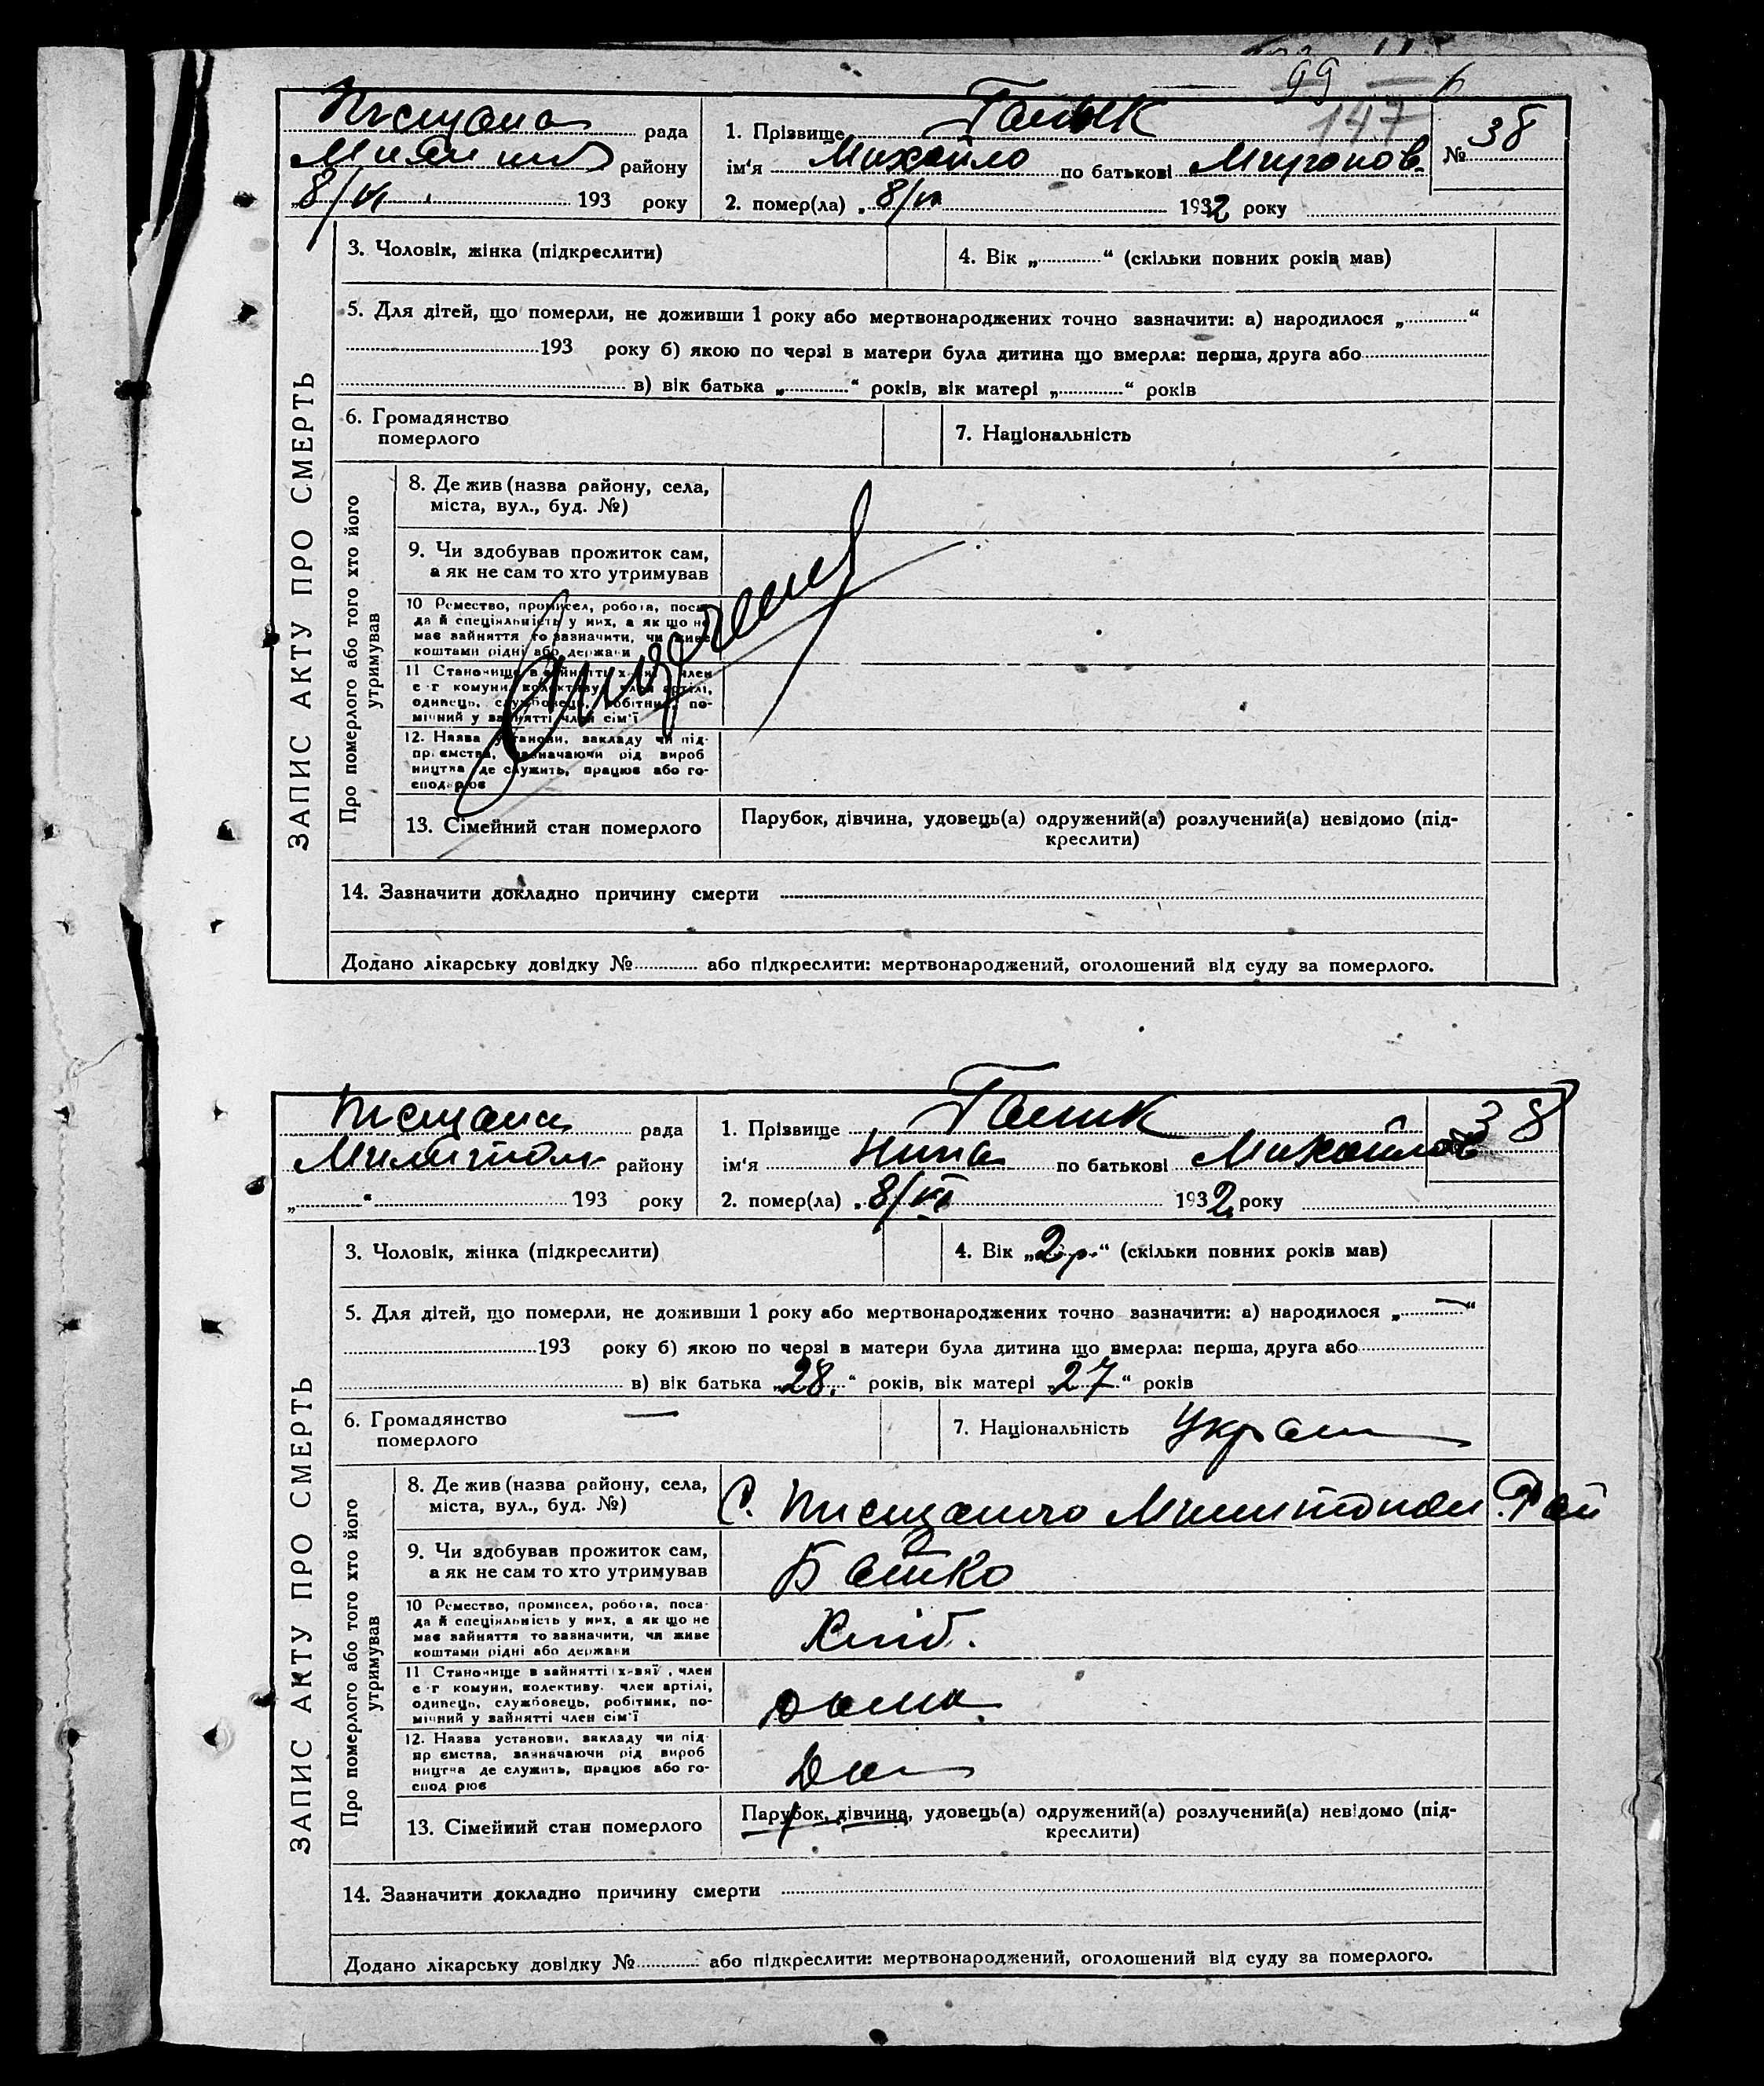 99
147
Пісщана рада
района
1. Прізвище Галик
№ 38
району
ім‘я Михайло по батькові Миронов.
8/VI 193 року
2. помер(ла) „8/VI 1932 року
ЗАПИС АКТУ ПРО СМЕРТЬ
3. Чоловік, жінка (підкреслити)
4. Вік „ “ (скільки повних років мав)
5. Для дітей, що померли, не доживши 1 року або мертвонароджених точно зазначити: а) народилося „ “
193 року б) якою по черзі в матери була дитина що вмерла: перша, друга або
в) вік батька „ “ років, вік матері „ “ років
6. Громадянство
померлого
7. Національність
Про померлого або того хто його
утримував
8. Де жив (назва району, села,
міста, вул., буд. №)
9. Чи здобував прожиток сам,
а як не сам то хто утримував
10 Ремество, промисел, робота, поса-
да й спеціяльність у них, а як що не
має зайняття то зазначити, чи живе
коштами рідні або держави
11 Становище в зайнятті член
с-г комуни, колективу, член артілі,
одинець, службовець, робітник, по-
мічний у зайнятті член сім‘ї
12. Назва установи, закладу чи під-
приємства, зазначаючи рід вироб
ництва де служить, працює або го-
сподарює
13. Сімейний стан померлого
Парубок, дівчина, удовець(а) одружений(а) розлучений(а) невідомо (під-
креслити)
14. Зазначити докладно причину смерти
Додано лікарську довідку № або підкреслити: мертвонароджений, оголошений від суду за померлого.
Пісщана рада
1. Прізвище Галик
38
району
ім‘я Нина по батькові Михайлов
„ “ 193 року
2. помер(ла) „8/VI 1932 року
ЗАПИС АКТУ ПРО СМЕРТЬ
3. Чоловік, жінка (підкреслити)
4. Вік „2 р.“ (скільки повних років мав)
5. Для дітей, що померли, не доживши 1 року або мертвонароджених точно зазначити: а) народилося „—“
193 року б) якою по черзі в матери була дитина що вмерла: перша, друга або
в) вік батька „28.“ років, вік матері „27“ років
6. Громадянство —
померлого
7. Національність Украін
Про померлого або того хто його
утримував
8. Де жив (назва району, села,
міста, вул., буд. №)
С. Рай
9. Чи здобував прожиток сам,
а як не сам то хто утримував
Батко
10 Ремество, промисел, робота, поса-
да й спеціяльність у них, а як що не
має зайняття то зазначити, чи живе
коштами рідні або держави
Хліб.
11 Становище в зайнятті (хазяї , член
с-г комуни, колективу. член артілі,
одинець, службовець, робітник, по-
мічний у зайнятті член сім‘ї
12. Назва установи, закладу чи під-
пр ємства, зазначаючи рід вироб
ництва де служить, працює або го-
спод рює
13. Сімейний стан померлого
Парубок, дівчина, удовець(а) одружений(а) розлучений(а) невідомо (під-
креслити)
14. Зазначити докладно причину смерти
Додано лікарську довідку № або підкреслити: мертвонароджений, оголошений від суду за померлого.